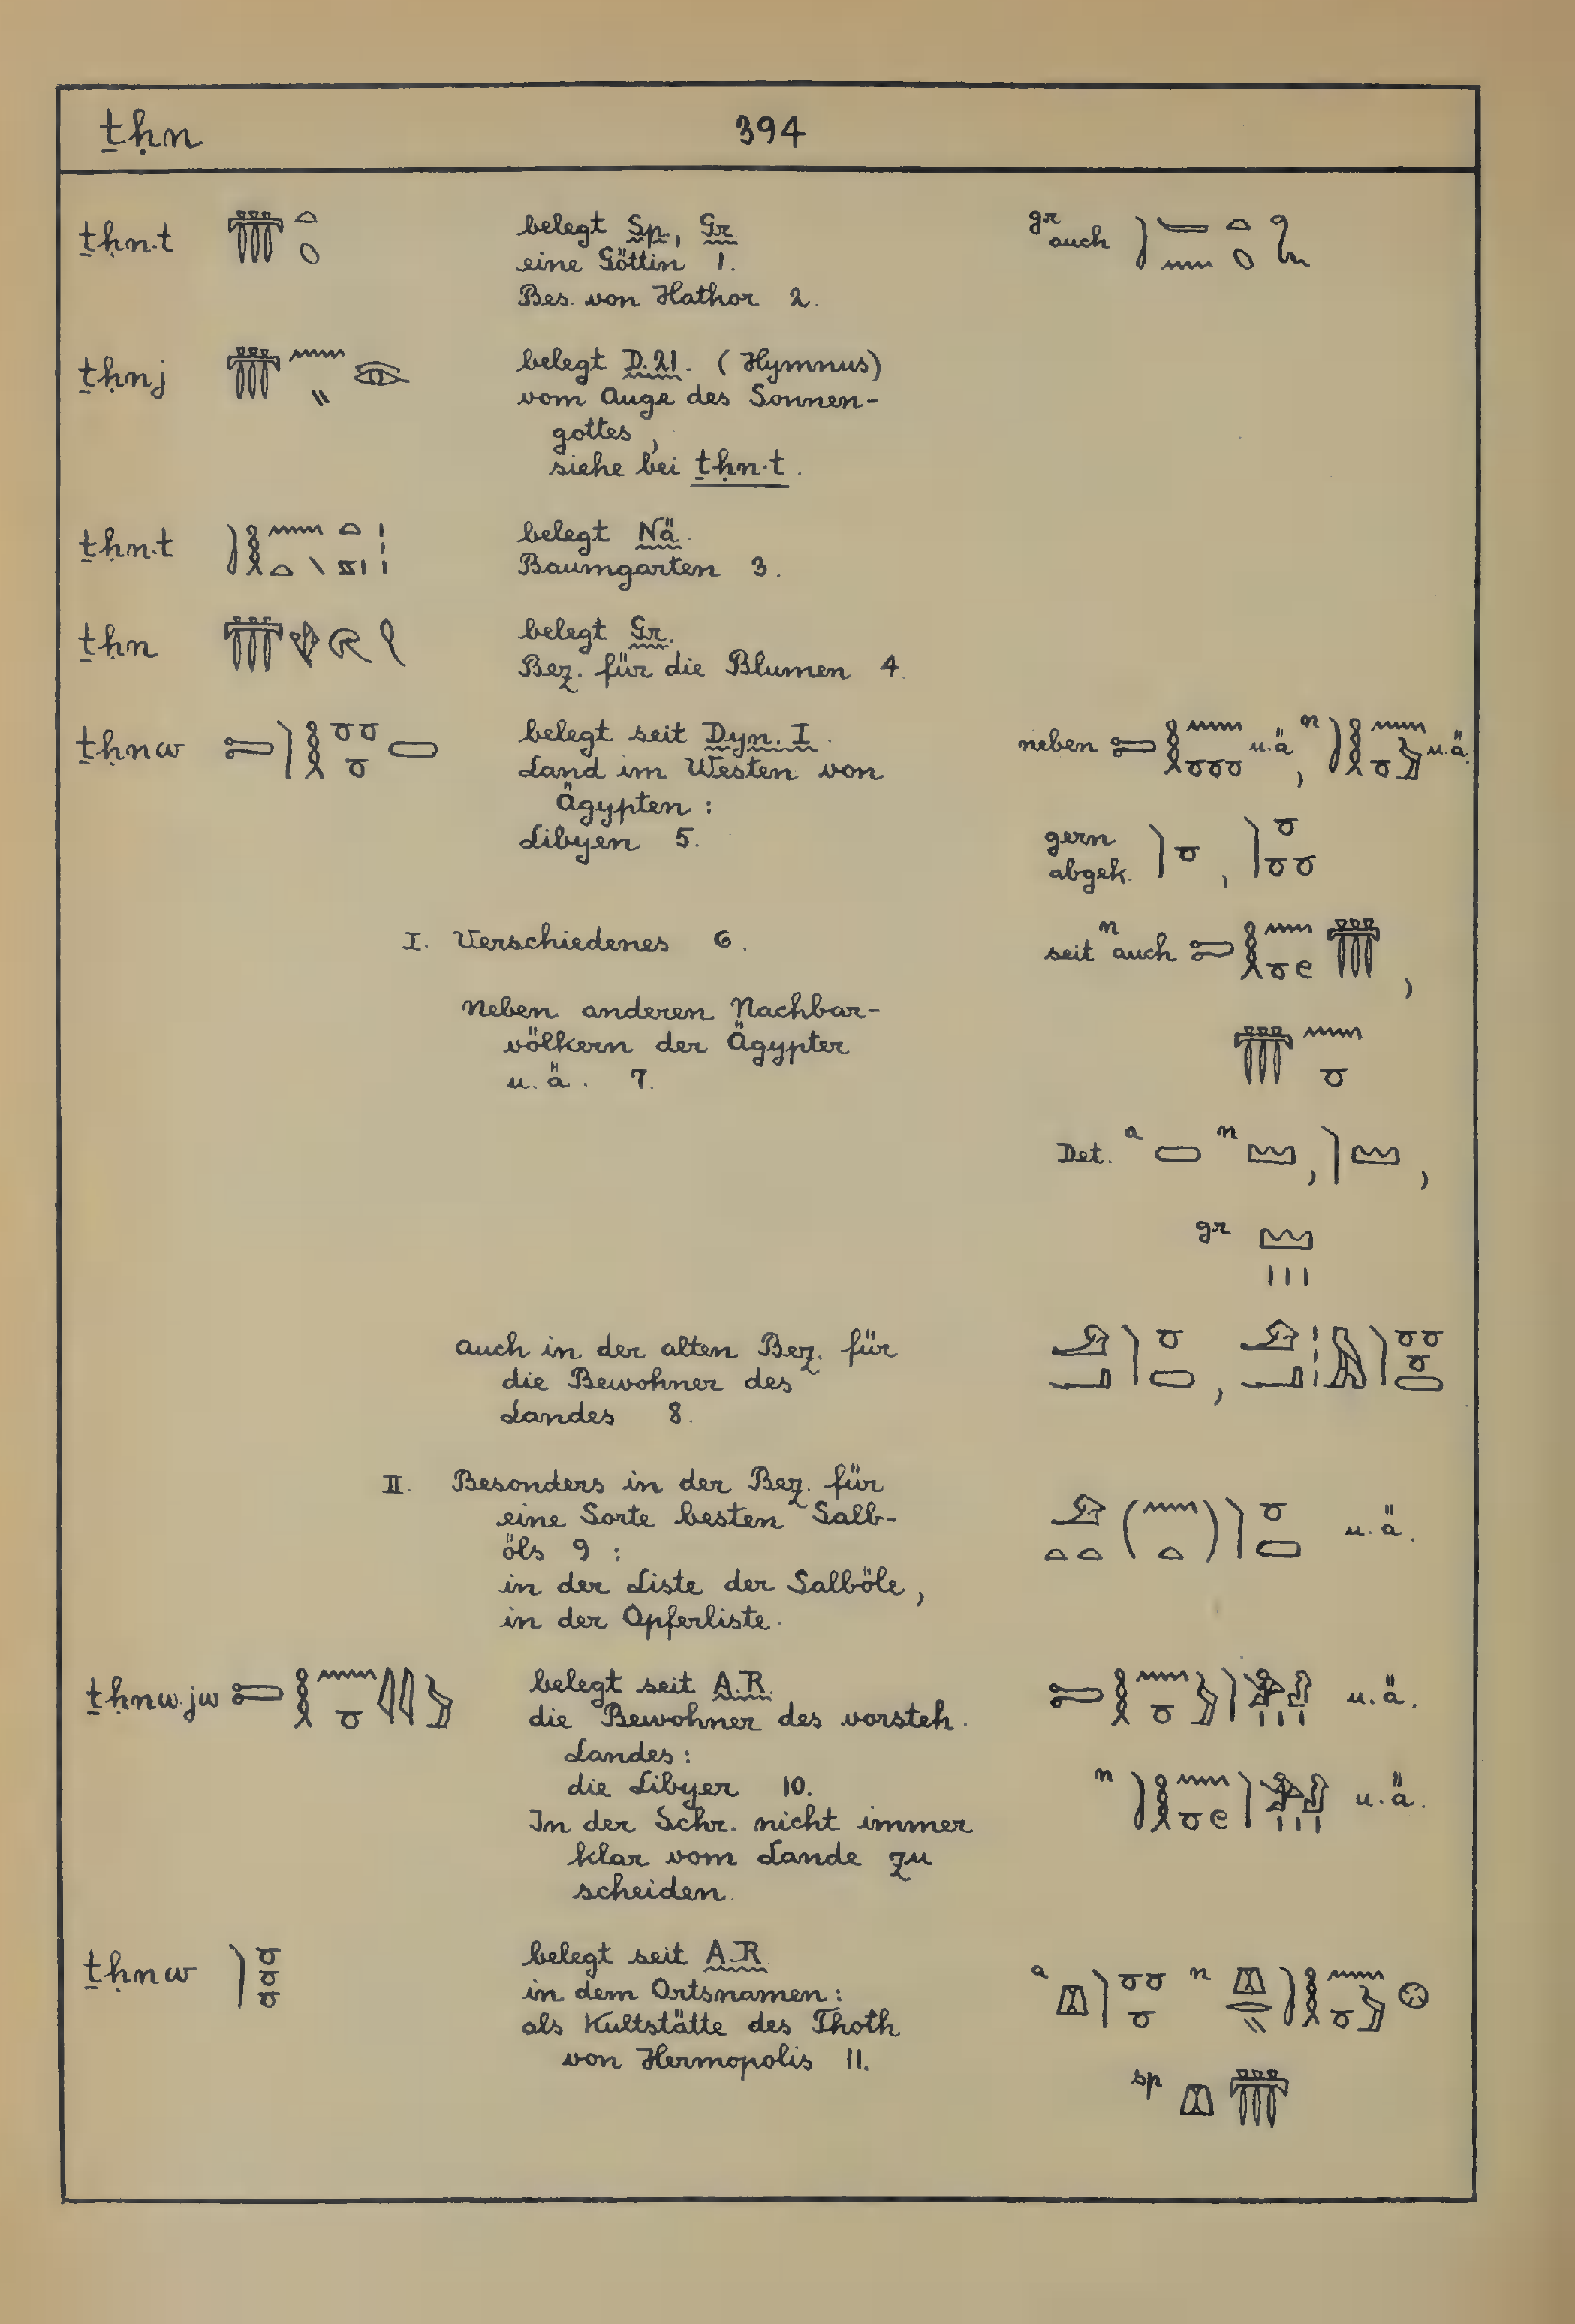 ṯḥn 394
ṯḥn.t belegt Sp., Gr. gr auch
eine Göttin 1.
Bes. von Hathor 2.
ṯḥnj belegt D.21. (Hymnus)
vom Auge des Sonnen-
gottes,
siehe bei ṯḥn.t.
ṯḥn.t belegt Nä.
Baumgarten 3.
ṯḥn belegt Gr.
Bez. für die Blumen 4.
ṯḥnw belegt seit Dyn. I. neben u.ä., n u.ä.
Land im Westen von
Ägypten:
Libyen 5. gern
abgek. ,
I. Verschiedenes 6. seit n auch ,
neben anderen Nachbar-
völkern der Ägypter
u.ä. 7.
Det. a n , ,
gr
auch in der alten Bez. für
die Bewohner des ,
Landes 8.
II. Besonders in der Bez. für
eine Sorte besten Salb- ( ) u.ä.
öls 9:
in der Liste der Salböle,
in der Opferliste.
ṯḥnw.jw belegt seit A.R. u.ä.
die Bewohner des vorsteh.
Landes:
die Libyer 10. n u.ä.
In der Schr. nicht immer
klar vom Lande zu
scheiden.
ṯḥnw belegt seit A.R.
in dem Ortsnamen: a n
als Kultstätte des Thoth
von Hermopolis 11. sp